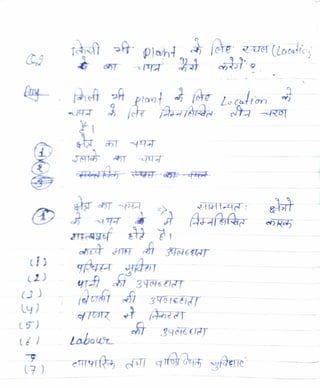 किसी भी plant के लिए स्थल (Location)
का चयन कैसे करेंगे ?
किसी भी plant के लिए Location के
चयन के लिए निम्नलिखित तीन चरण
हैं।
① क्षेत्र का चयन
② इलाके का चयन
① क्षेत्र का चयन :> सामान्यत: क्षेत्रो
के चयन में निम्नलिखित कारक
महत्वपूर्ण होते हैं।
(1) कच्चे माल की उपलब्धता
(2) परिवहन सुविधा
(3) पानी की उपलब्धता
(4) बिजली की उपलब्धता
(5) बाजार से निकटता
(6) Labour की उपलब्धता
(7) व्यापारिक तथा वाणिज्यिक सुविधाएं